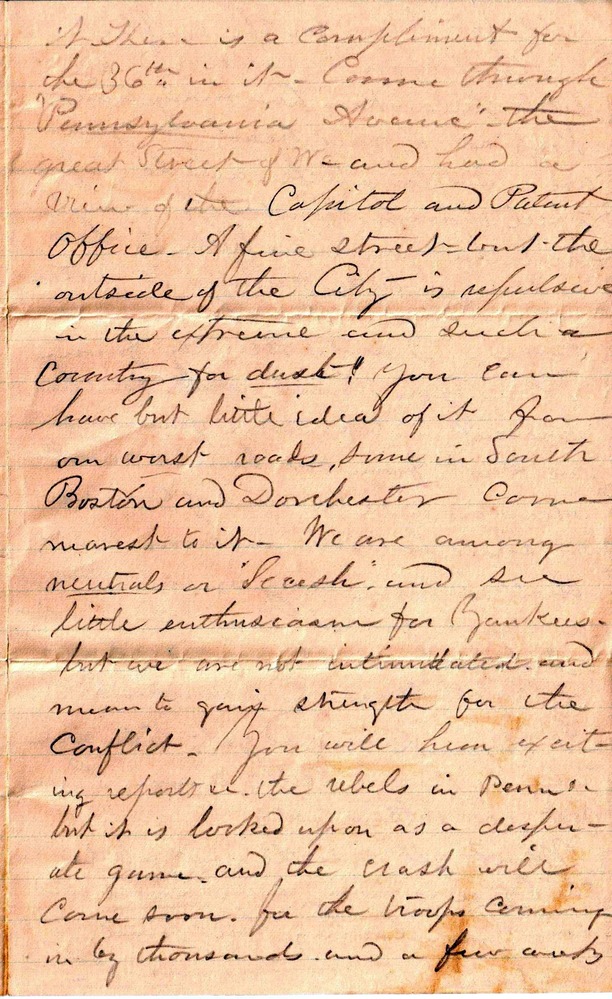 it There is a compliment for
the 36th in it - Come through
Pennsylvania Avenue" - the
great Street of W- and had a
view of the Capitol and Patent
Office - A fine street - but the
outside of the City is repulsive
in the extreme and such a
Country for dust! You can
have but little idea of it from
our worst roads, some in South
Boston and Dorchester come
nearest to it - We are among
neutrals or "Secesh" and see
little enthusiasm for Yankees -
but we are not intimidated and
mean to gain strength for the
Conflict - You will hear excit-
ing reports the rebels in Penn
but it is looked upon as a desper-
ate game and the crash will
come soon. for the troops coming
in by thousands and a few weeks